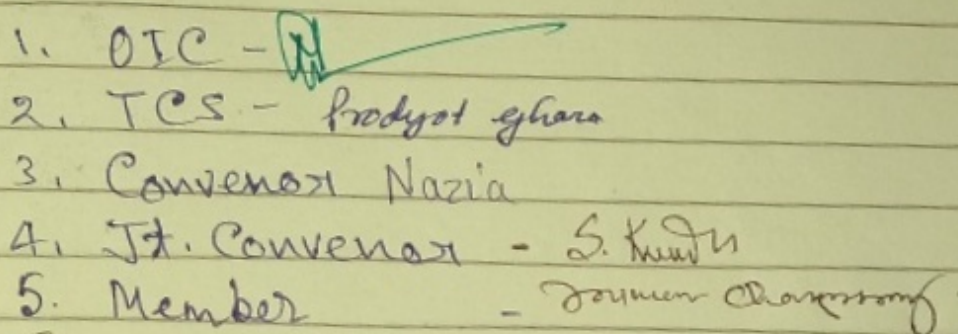 1. OIC -
2. TCS - Prodyot Ghara
3. Convenor Nazia
4. Jt. Convenor - S. Kundu
5. Member -